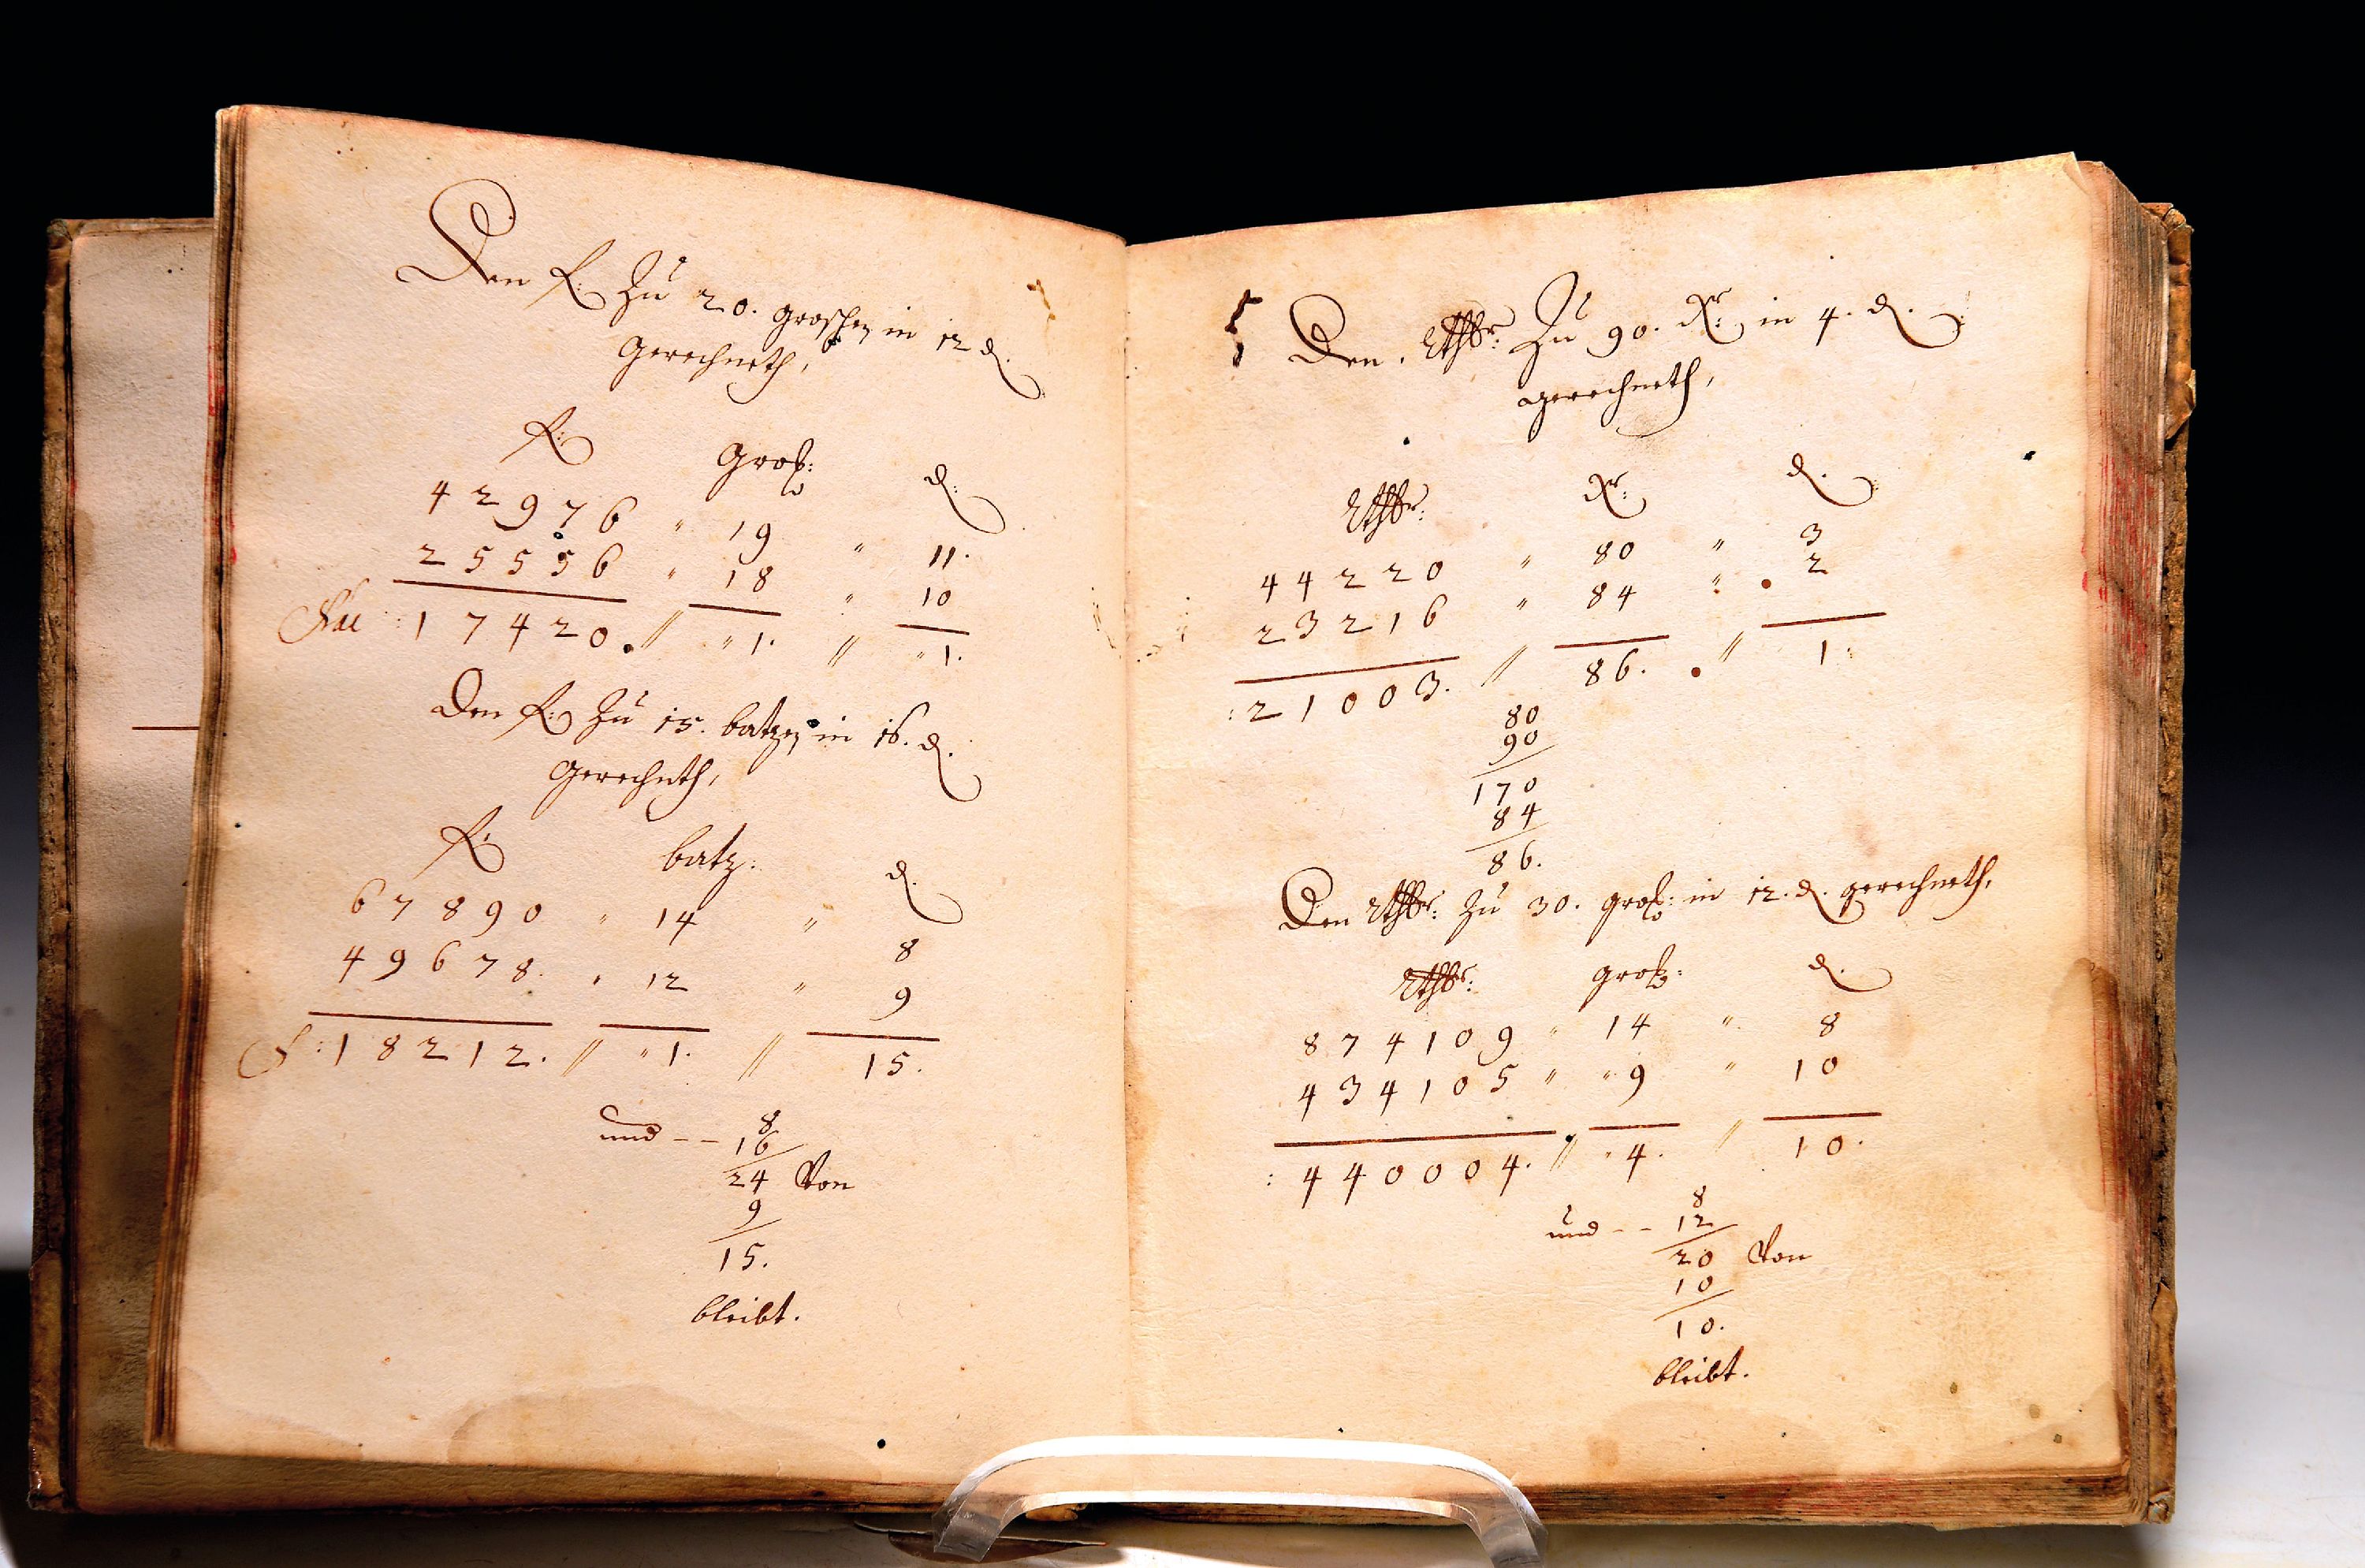 Den f: zu 20. groschen in 12 d.
Gerechneth,
f: Groß: d:
42976 " 19 " 11.
25556 " 18 " 10
17420. // " 1. // " 1.
Den f: zu 15. batzen in 16. d.
Gerechnth,
f: batz: d.
67890 " 14 " 8
49678. " 12 " 9
: 18212. // " 1. // 15.
8
und -- 16
24 Von
9
15.
bleibt.
5 Den. Rthlr: zu 90. Xr: in 4. d.
gerechneth,
Rthlr: Xr: d.
44220 " 80 " 3
23216 " 84 " 2
: 21003. // 86. // 1.
80
90
170
84
86.
Den Rthlr: zu 30. groß: in 12. d. gerechneth,
Rthlr: groß: d.
874109 " 14 " 8
434105 " " 9 " 10
: 440004. // " 4. // 10.
8
und -- 12
20 Von
10
10.
bleibt.